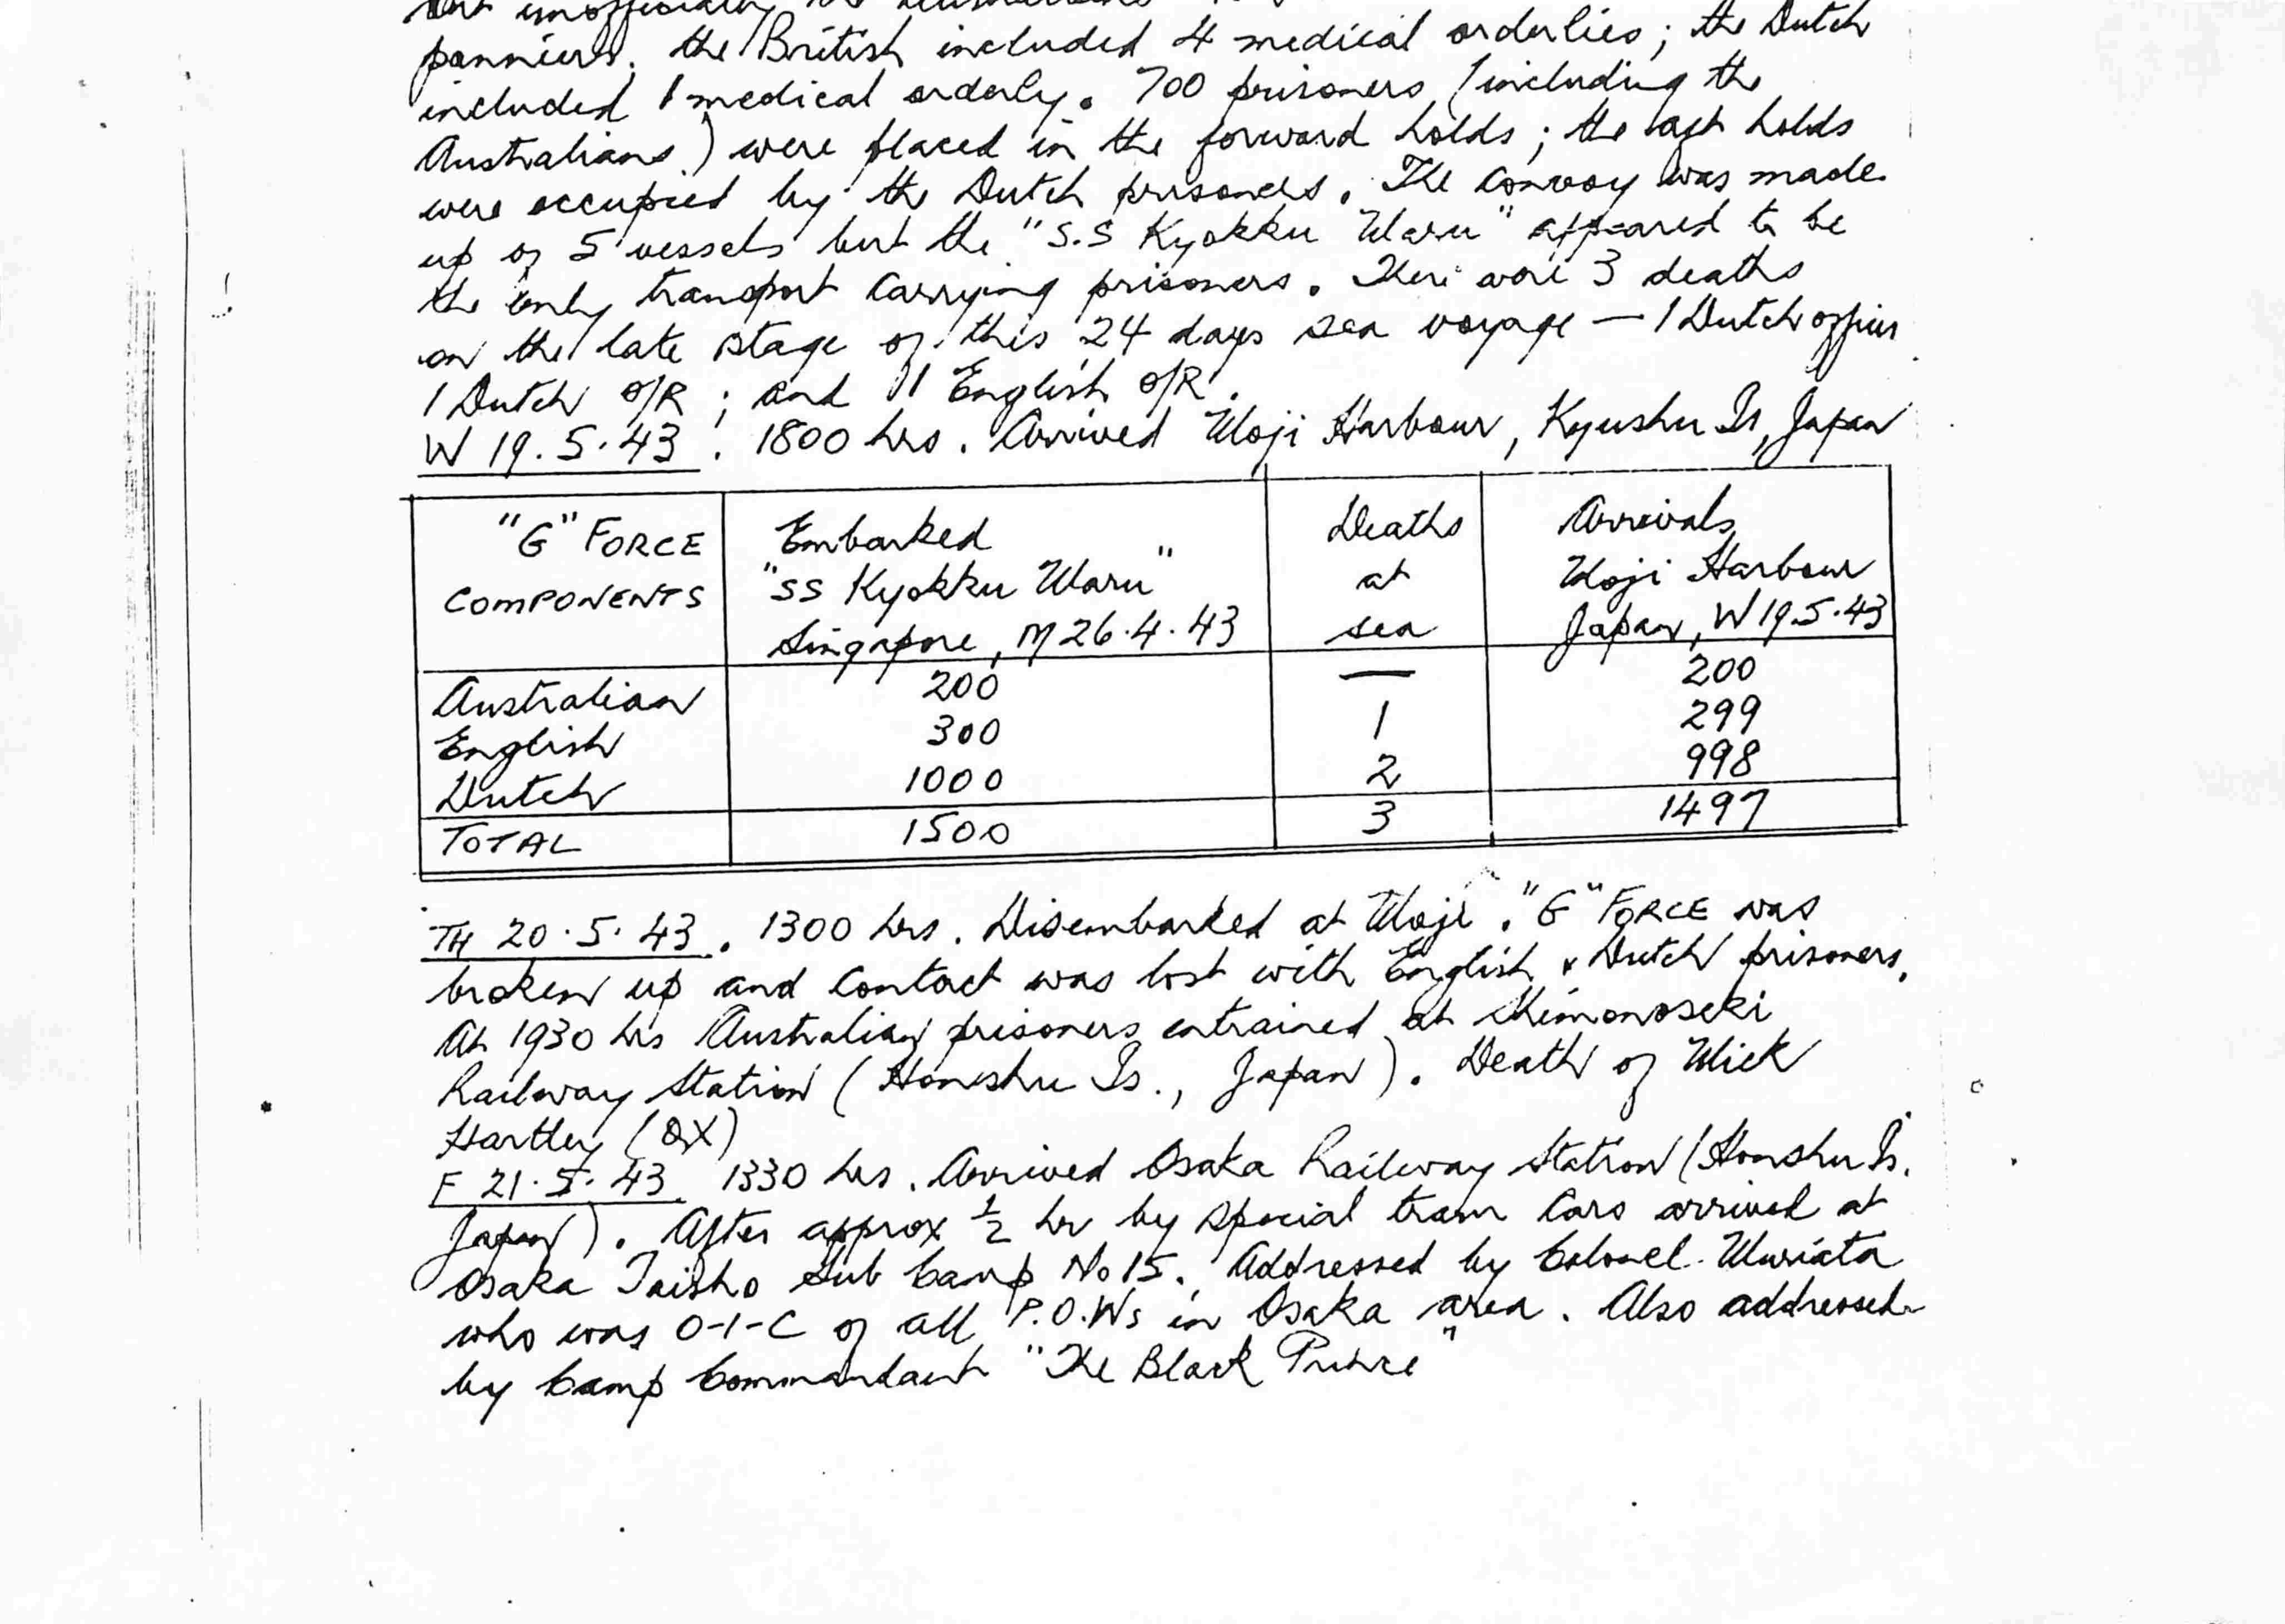 but unofficially the
panniers. the British included 4 medical orderlies; the Dutch
included 1 medical orderly. 700 prisoners (including the
Australians) were placed in the forward holds; the aft holds
were occupied by the Dutch prisoners. The Convoy was made
up of 5 vessels but the "S.S Kyokku Maru" appeared to be
the only transport carrying prisoners. There were 3 deaths
on the late stage of this 24 days sea voyage — 1 Dutch officer
1 Dutch O/R; and 1 English O/R.
W 19.5.43. 1800 hrs. Arrived Moji Harbour, Kyushu Is, Japan
"G" FORCE COMPONENTS | Embarked "SS Kyokku Maru" Singapore, M 26.4.43 | Deaths at sea | Arrivals Moji Harbour Japan, W 19.5.43
Australian 200 — 200
English 300 1 299
Dutch 1000 2 998
TOTAL 1500 3 1497
TH 20.5.43. 1300 hrs. Disembarked at Moji. "G" FORCE was
broken up and contact was lost with English & Dutch prisoners.
At 1930 hrs Australian prisoners entrained at Shimonoseki
Railway Station (Honshu Is., Japan). Death of Mick
Hartley (QX)
F 21.5.43. 1330 hrs. Arrived Osaka Railway Station (Honshu Is.
Japan). After approx ½ hr by special tram cars arrived at
Osaka Taisho Sub Camp No 15. Addressed by Colonel Muriata
who was O-I-C of all P.O.Ws in Osaka area. Also addressed
by Camp Commandant "The Black Prince"